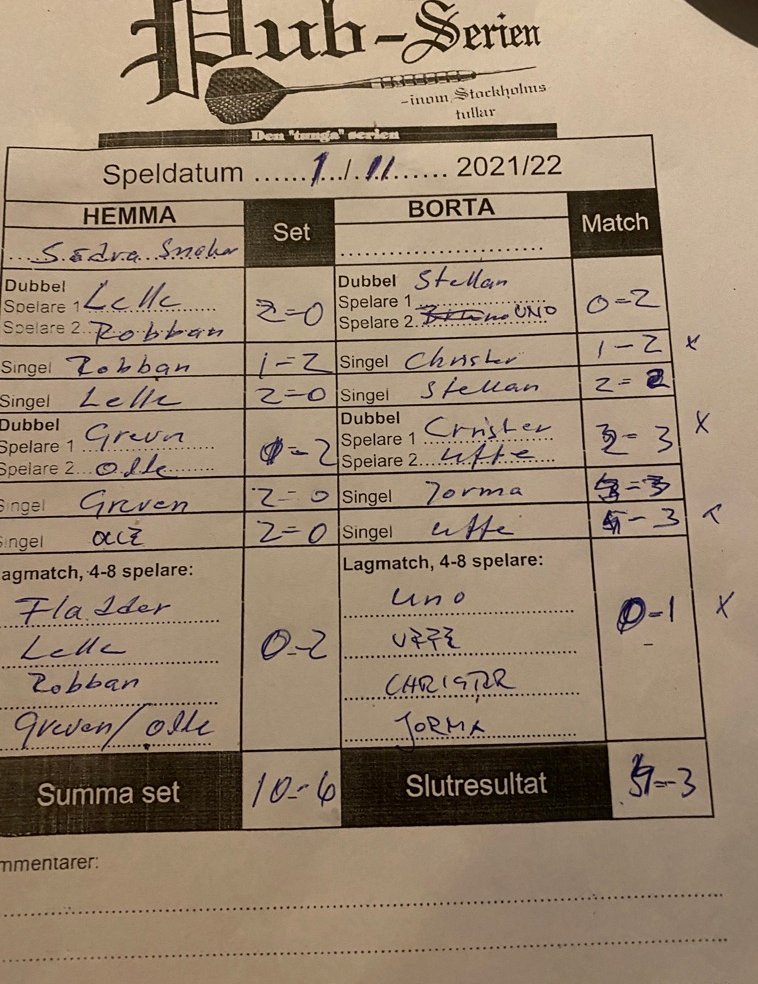 Pub-Serien
-inom Stockholms
tullar
Den "tunga" serien
Speldatum ......1../.11...... 2021/22
HEMMA Set BORTA Match
Södra
Dubbel
Spelare 1 Lelle
Spelare 2 Robban
2-0
Dubbel Stellan
Spelare 1
Spelare 2 UNO
0-2
Singel Robban 1-2 Singel Christer 1-2 x
Singel Lelle 2-0 Singel Stellan 2-2
Dubbel
Spelare 1 Greven
Spelare 2 Olle
0-2
Dubbel
Spelare 1 Christer
Spelare 2 Uffe
3 x
Singel Greven 2-0 Singel Jorma
ingel Olle 2-0 Singel Uffe -3
agmatch, 4-8 spelare: Lagmatch, 4-8 spelare:
Fladder Uno
Lelle UFFE
Robban CHRISTER
Greven/Olle JORMA
0-2
0-1 x
Summa set 10-6 Slutresultat -3
mmentarer: